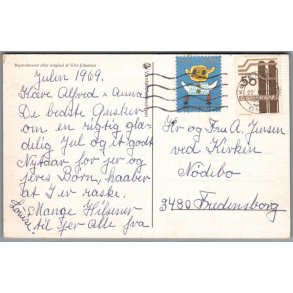 Reproduceret efter original af Gitte Johansen
Julen 1969.
Kære Alfred & Anna.
De bedste Ønsker
om en rigtig glæ-
delig Jul og et godt
Nytaar for jer og
jeres Børn, haaber
at I er raske.
Mange Hilsener
til jer alle fra
Louise.
Hr og Fru A. Jensen
ved Kirken
Nödebo
3480 Fredensborg
50